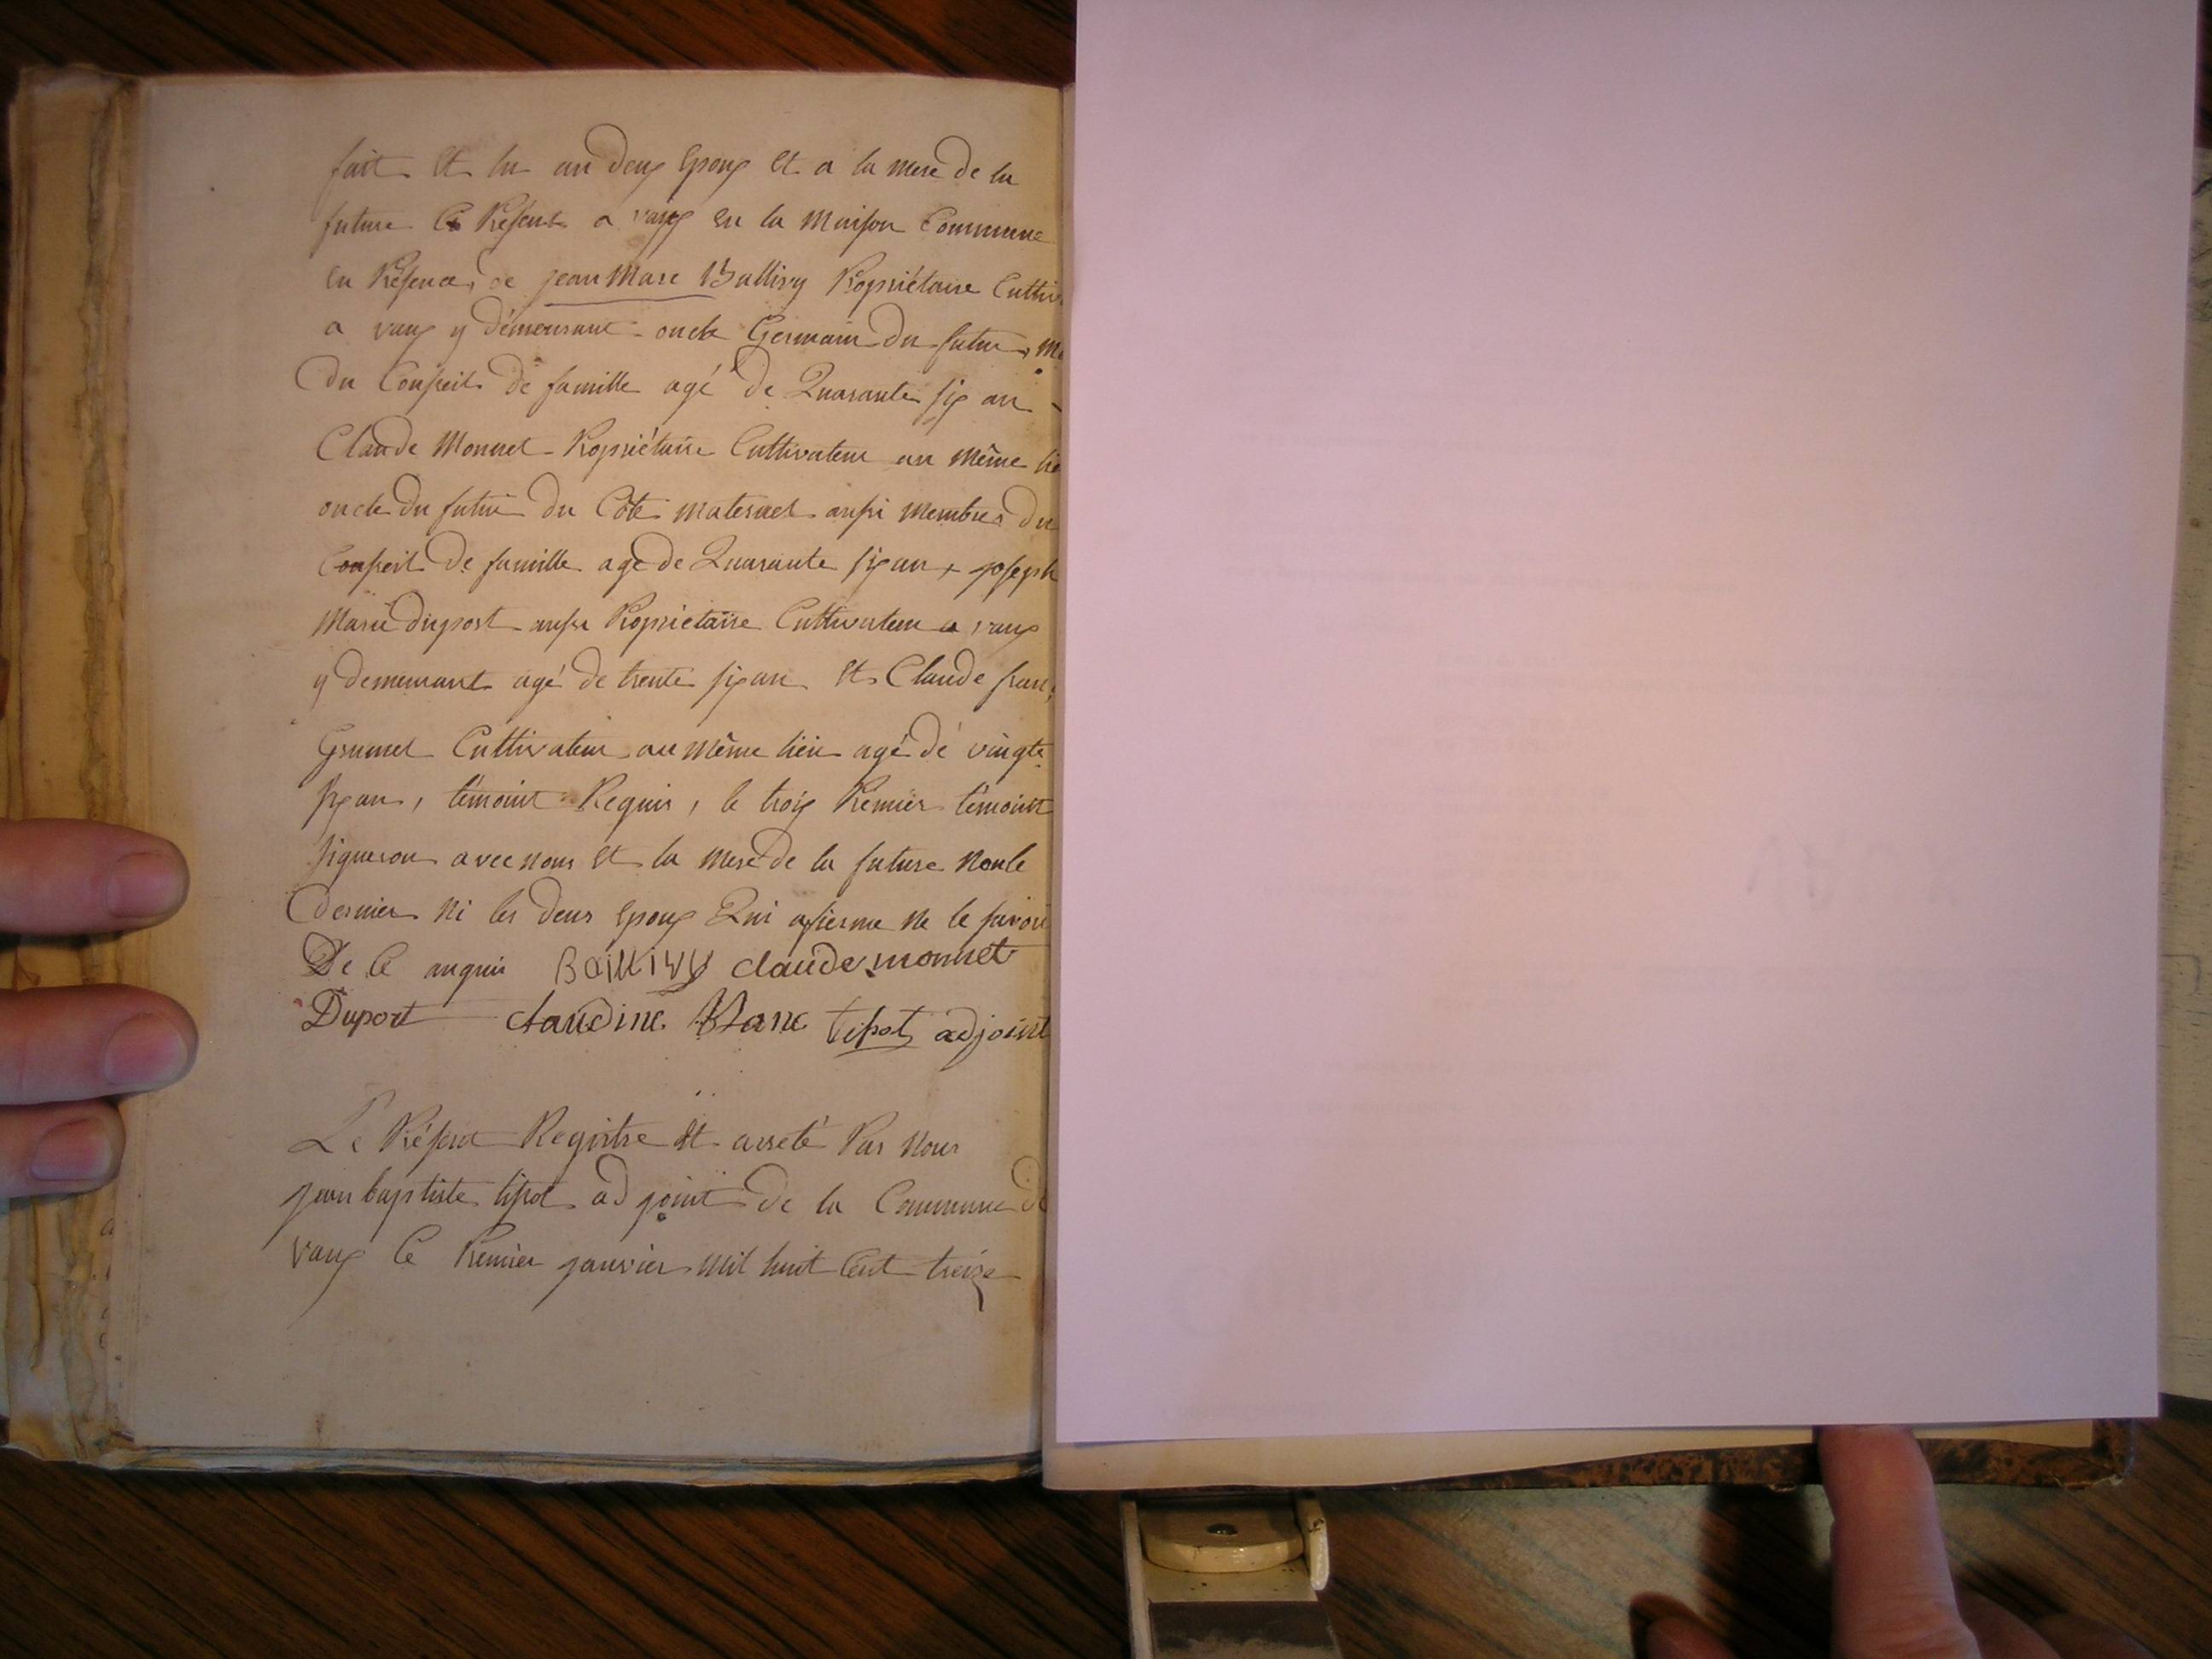 fait et lu au deux Epoux et a la mere de la
future Ci Présent a vaux en la Maison Commune
en Présence de jean Marc Ballivy Propriétaire Cultiv
a vaux y démeurant oncle Germain du futur, M
du Conseil de famille agé de Quarante six an
Claude Monnet Propriétaire Cultivateur au même lie
oncle du futur du Coté maternel aussi Membres du
Conseil de famille agé de Quarante six an, joseph
Marie duport aussi Propriétaire Cultivateur a vaux
y demeurant agé de trente six an et Claude fran
Grumel Cultivateur au même lieu agé dé vingt
six an, témoint Requis, le trois Premier témoint
signeron avec nous et la mere de la future Non le
dernier Ni les deux Epoux Qui afierme Ne le savoir
De Ce anquis Baillivy claude monnet
Duport claudine Blanc tissot adjoint
Le Présent Registre et arreté Par Nous
jean baptiste tissot adjoint de la Commune de
vaux Ce Premier janvier Mil huit Cent treize